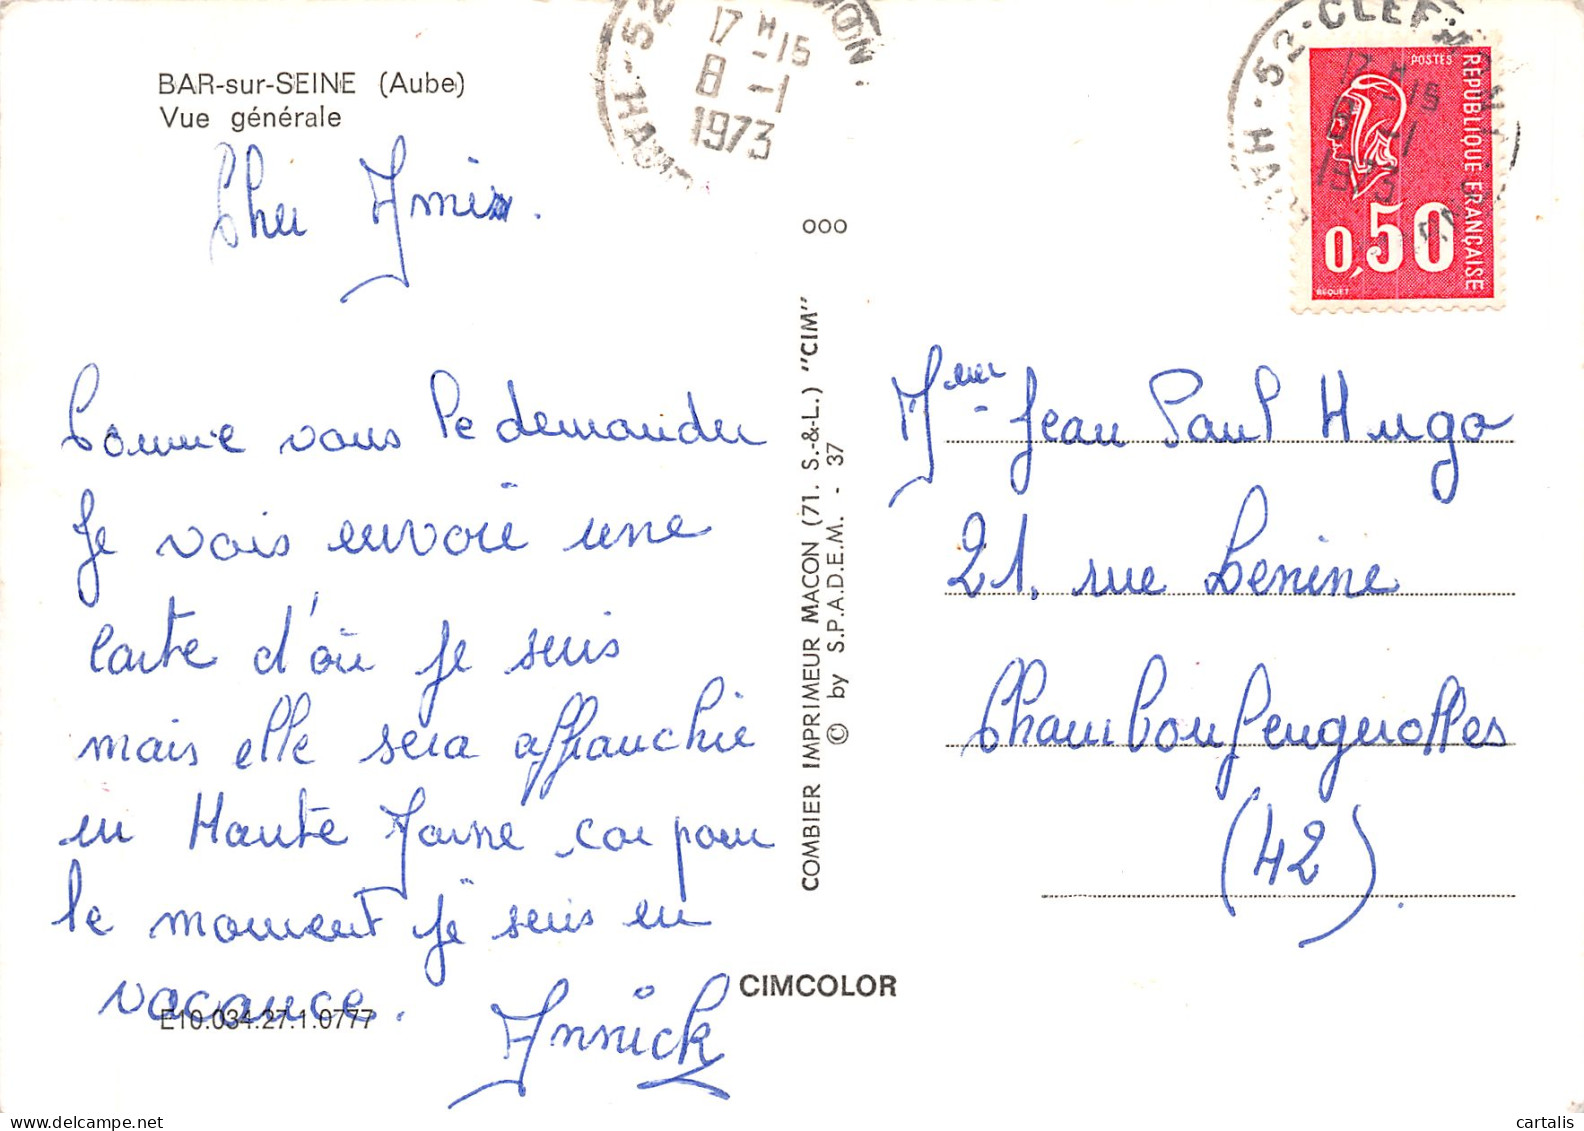 BAR-sur-SEINE (Aube)
Vue générale
Cher Amis.
Comme vous le demander
Je vais envoie une
carte d'où je suis
mais elle sera affranchie
en Haute Marne car pour
le moment je suis en
vacance.
Annick
E10.034.27.1.0777
CIMCOLOR
COMBIER IMPRIMEUR MACON (71. S.-&-L.) "CIM"
© by S.P.A.D.E.M. - 37
ooo
17 H -15
8 -1
1973
52
HAUTE
52-CLEFMONT
17 H -15
8 -1
1973
POSTES
REPUBLIQUE FRANÇAISE
0,50
BEQUET
Mme Jean Paul Hugo
21, rue Lenine
Chambonfeugerolles
(42).
cartalis